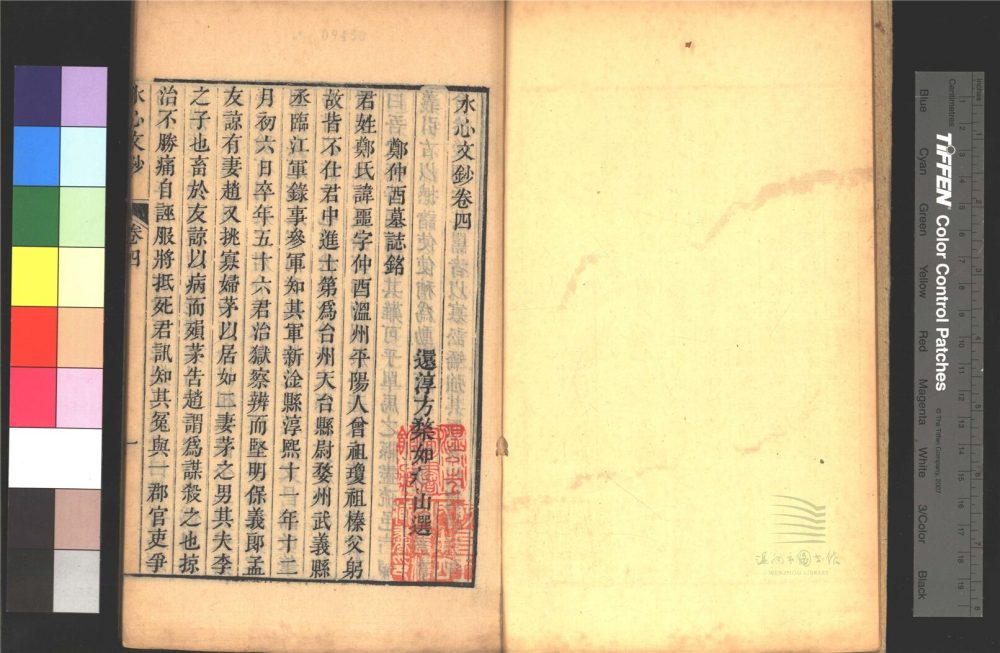 水心文鈔卷四
還淳方楘如文輈選
鄭仲酉墓誌銘
君姓鄭氏諱噩字仲酉溫州平陽人曾祖瓊祖榛父躬
故皆不仕君中進士第爲台州天台縣尉婺州武義縣
丞臨江軍錄事參軍知其軍新淦縣淳熙十一年十二
月初六日卒年五十六君治獄察辨而堅明保義郎孟
友諒有妻趙又挑寡婦茅以居如二妻茅之男其夫李
之子也畜於友諒以病而殞茅告趙謂爲謀殺之也掠
治不勝痛自誣服將抵死君訊知其冤與一郡官吏爭
水心文鈔
卷四
一
溫州市圖書館
WENZHOU LIBRARY
TIFFEN Color Control Patches
© The Tiffen Company, 2007
Inches
Centimetres
Blue
Cyan
Green
Yellow
Red
Magenta
White
3/Color
Black